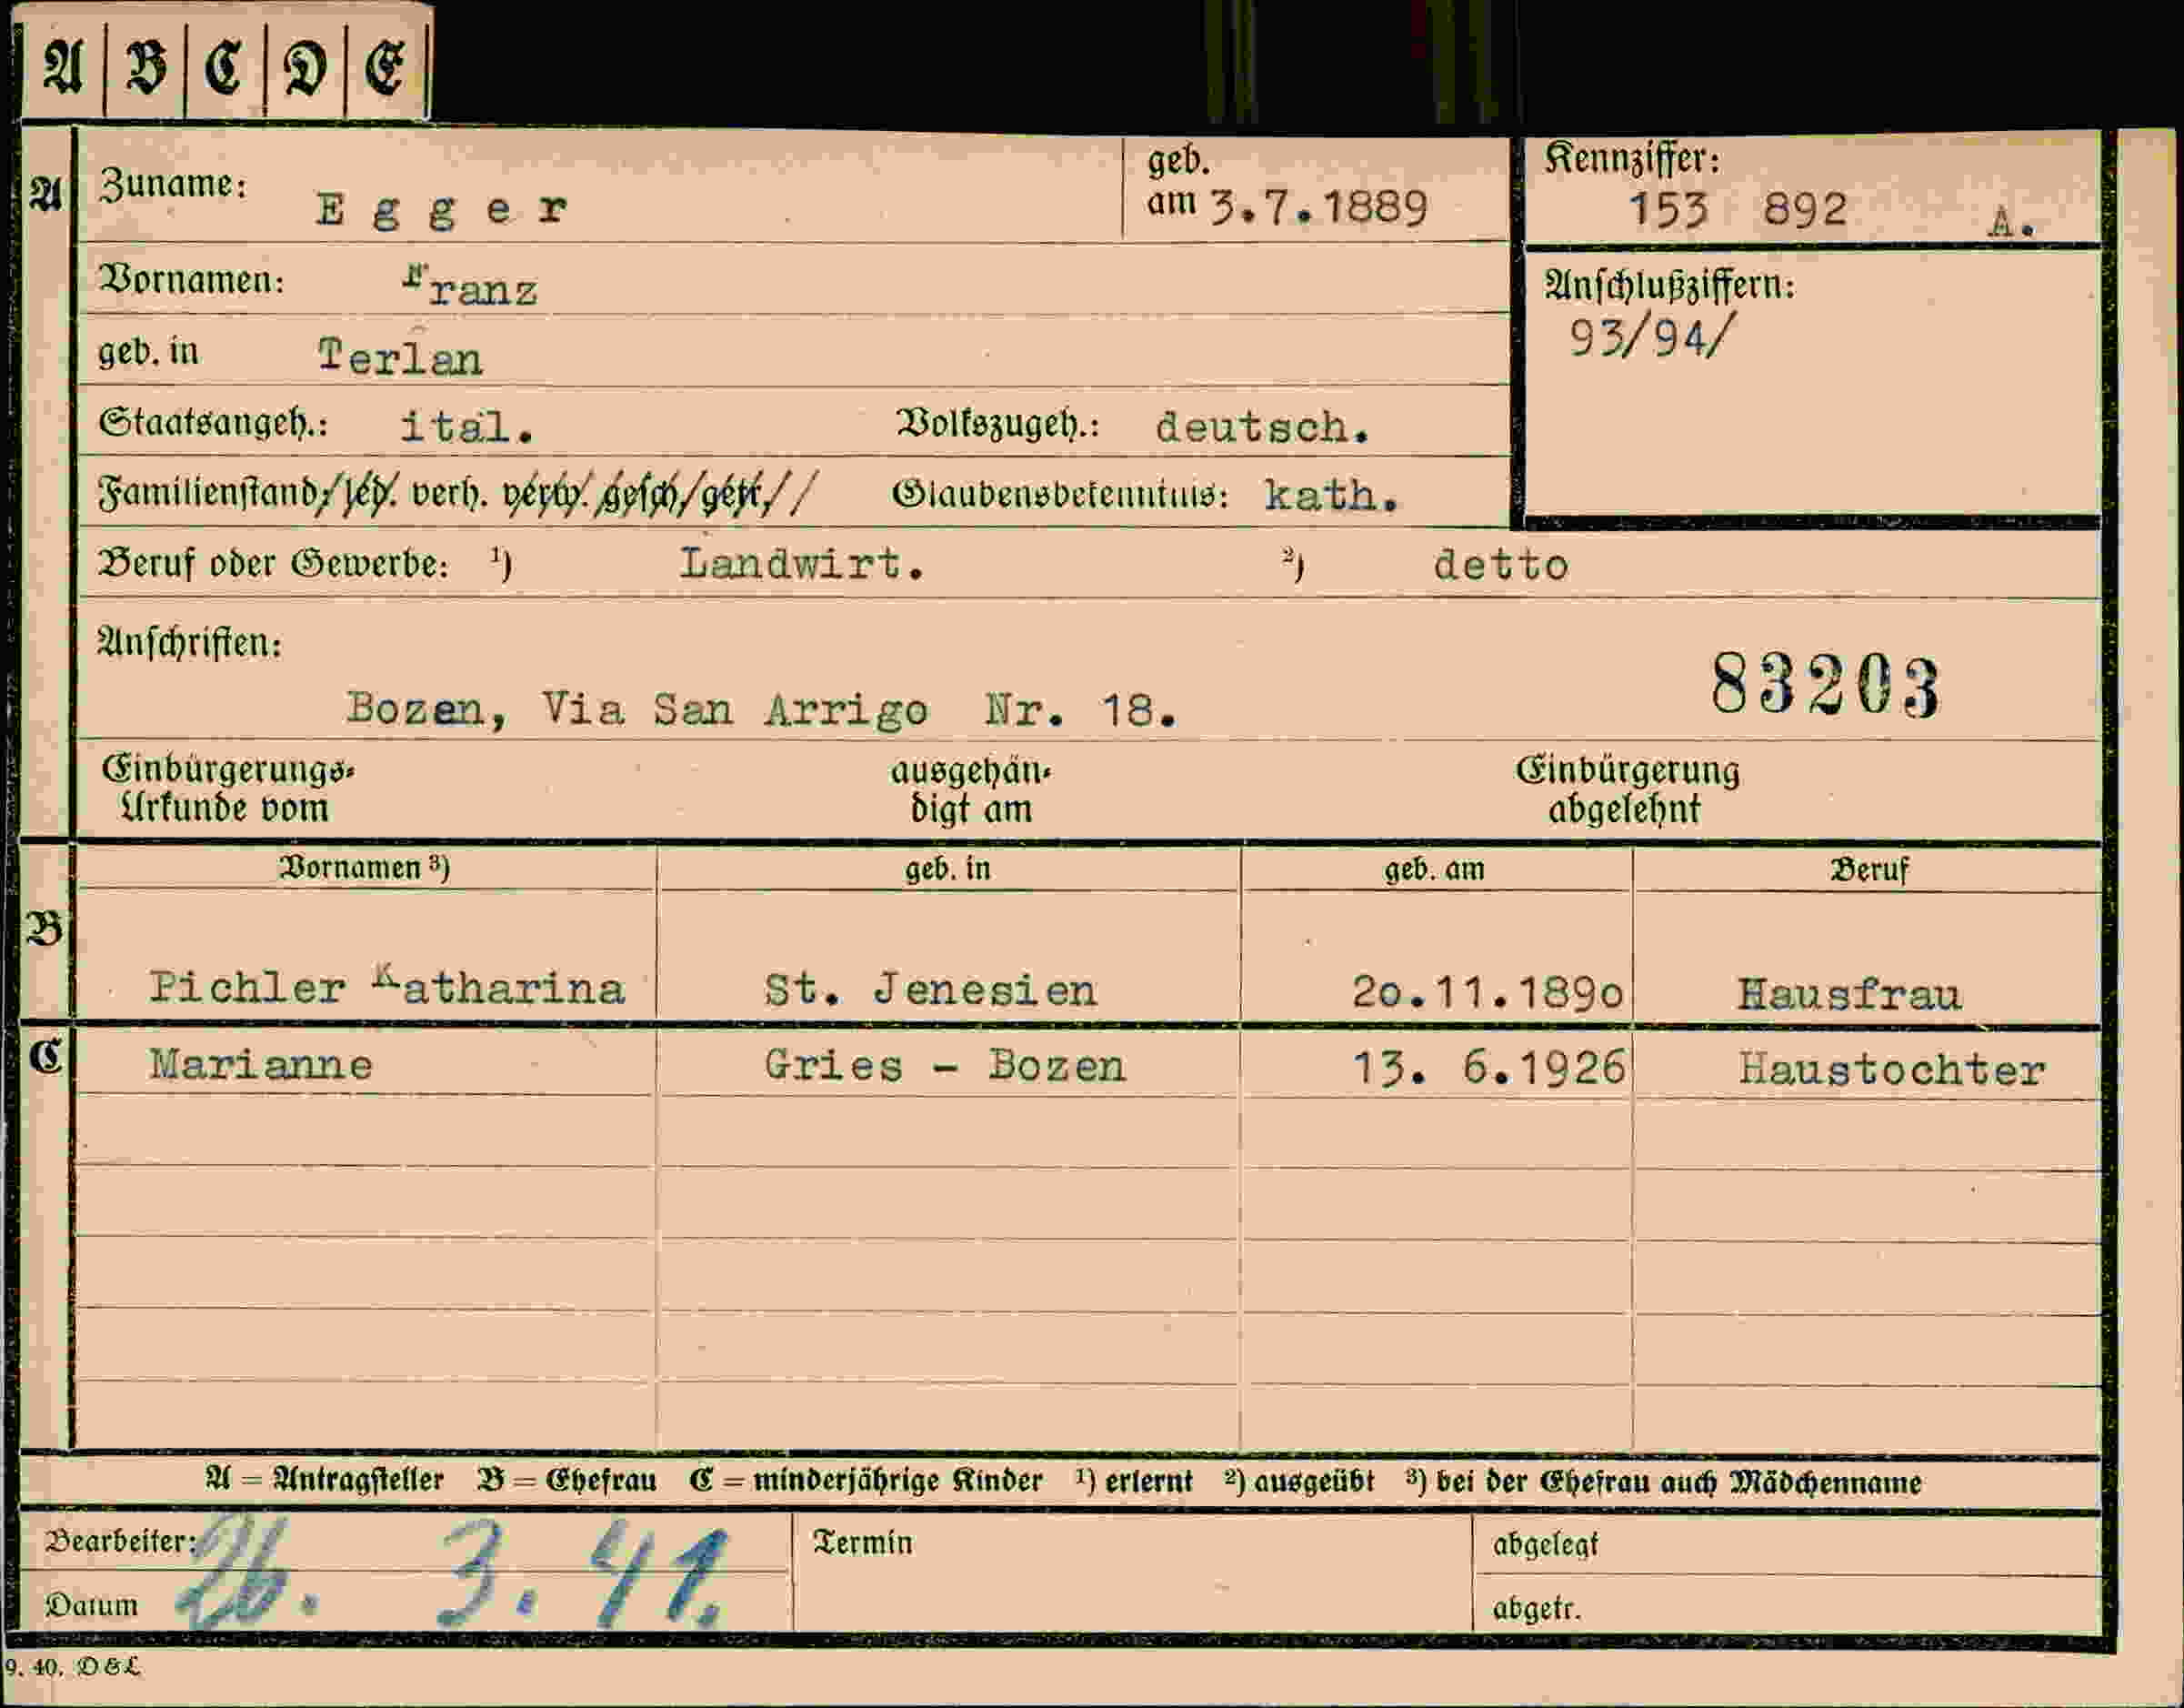 A B C D E
A Zuname: Egger geb. am 3.7.1889 Kennziffer: 153 892 A.
Vornamen: Franz Anschlußziffern:
93/94/
geb. in Terlan
Staatsangeh.: ital. Volkszugeh.: deutsch.
Familienstand: led. verh. verw. gesch. getr. Glaubensbekenntnis: kath.
Beruf oder Gewerbe: ¹) Landwirt. ²) detto
Anschriften:
Bozen, Via San Arrigo Nr. 18. 83203
Einbürgerungs- ausgehän- Einbürgerung
Urkunde vom digt am abgelehnt
Vornamen ³) geb. in geb. am Beruf
B
Pichler Katharina St. Jenesien 20.11.1890 Hausfrau
C Marianne Gries - Bozen 13. 6.1926 Haustochter
A = Antragsteller B = Ehefrau C = minderjährige Kinder ¹) erlernt ²) ausgeübt ³) bei der Ehefrau auch Mädchenname
Bearbeiter: Termin abgelegt
26. 3. 41.
Datum abgetr.
9. 40. D&L